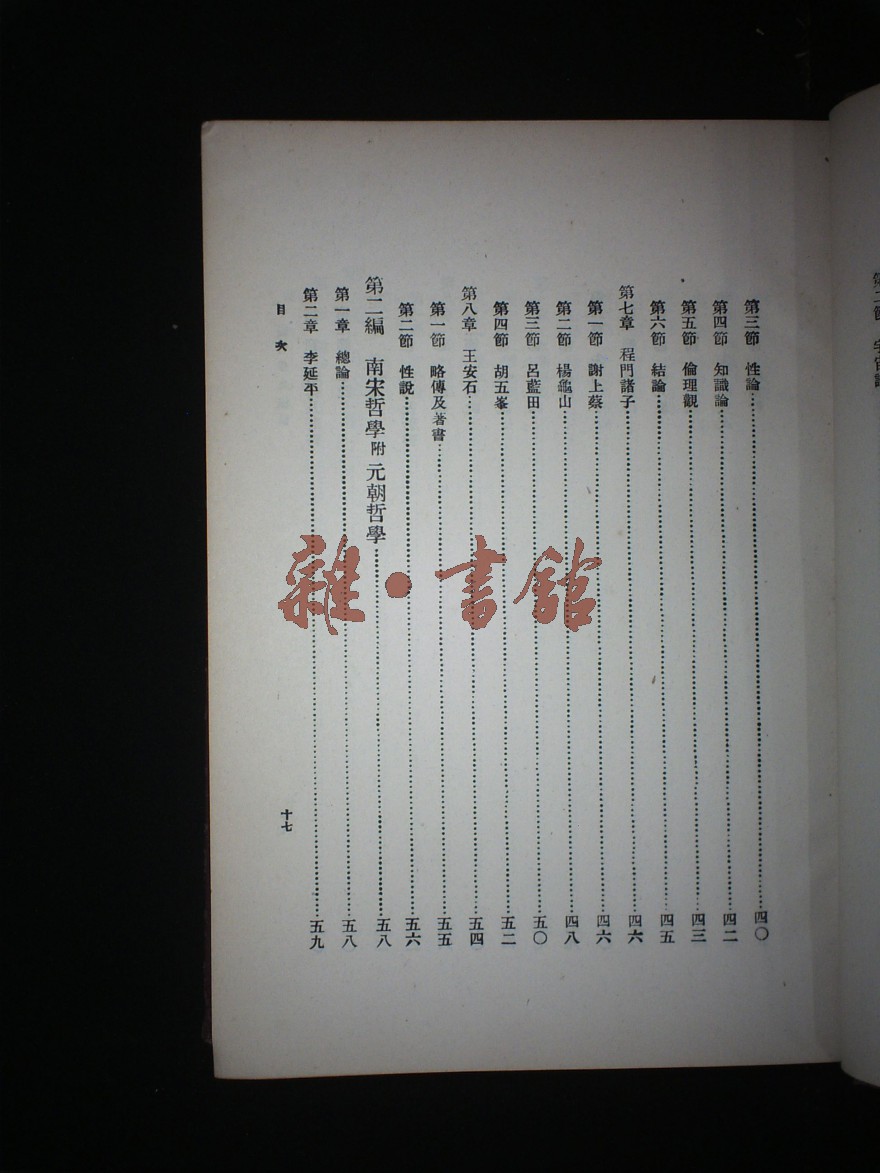 第三節 性論……四〇
第四節 知識論……四二
第五節 倫理觀……四三
第六節 結論……四五
第七章 程門諸子……四六
第一節 謝上蔡……四六
第二節 楊龜山……四八
第三節 呂藍田……五〇
第四節 胡五峯……五二
第八章 王安石……五四
第一節 略傳及著書……五五
第二節 性說……五六
第二編 南宋哲學 附 元朝哲學……五八
第一章 總論……五八
第二章 李延平……五九
目次
十七
雜·書館